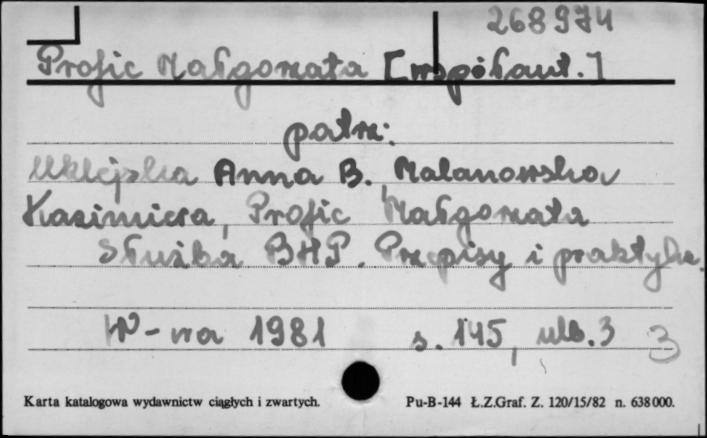 268974
Profic Małgorzata [współaut.]
patrz:
Uklejska Anna B., Malanowska
Kazimiera, Profic Małgorzata
Służba BHP. Przepisy i praktyka.
W-wa 1981 s. 145, nlb. 3 3
Karta katalogowa wydawnictw ciągłych i zwartych. Pu-B-144 Ł.Z.Graf. Z. 120/15/82 n. 638000.